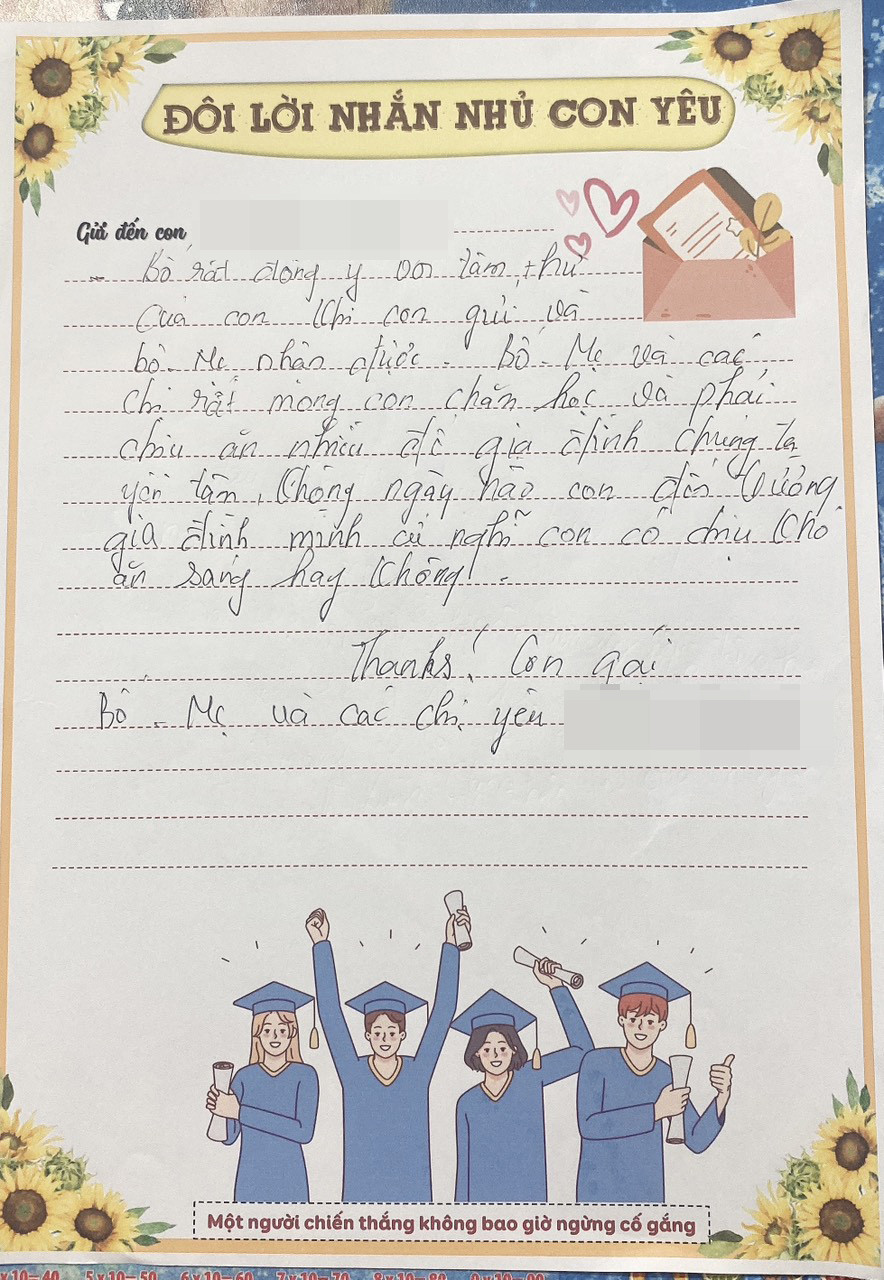 ĐÔI LỜI NHẮN NHỦ CON YÊU
Gửi đến con,
Bố rất đồng ý với tâm thư
Của con khi con gửi và
bố - Mẹ nhận được. Bố - Mẹ và các
chị rất mong con chăm học và phải
chịu ăn nhiều để gia đình chúng ta
yên tâm, không ngày nào con đến trường
gia đình mình cứ nghĩ con có chịu khó
ăn sáng hay không!.
Thanks! Con gái
Bố - Mẹ và các chị yêu
Một người chiến thắng không bao giờ ngừng cố gắng
x10=40 5x10=50 6x10=60 7x10=70 8x10=80 9x10=90